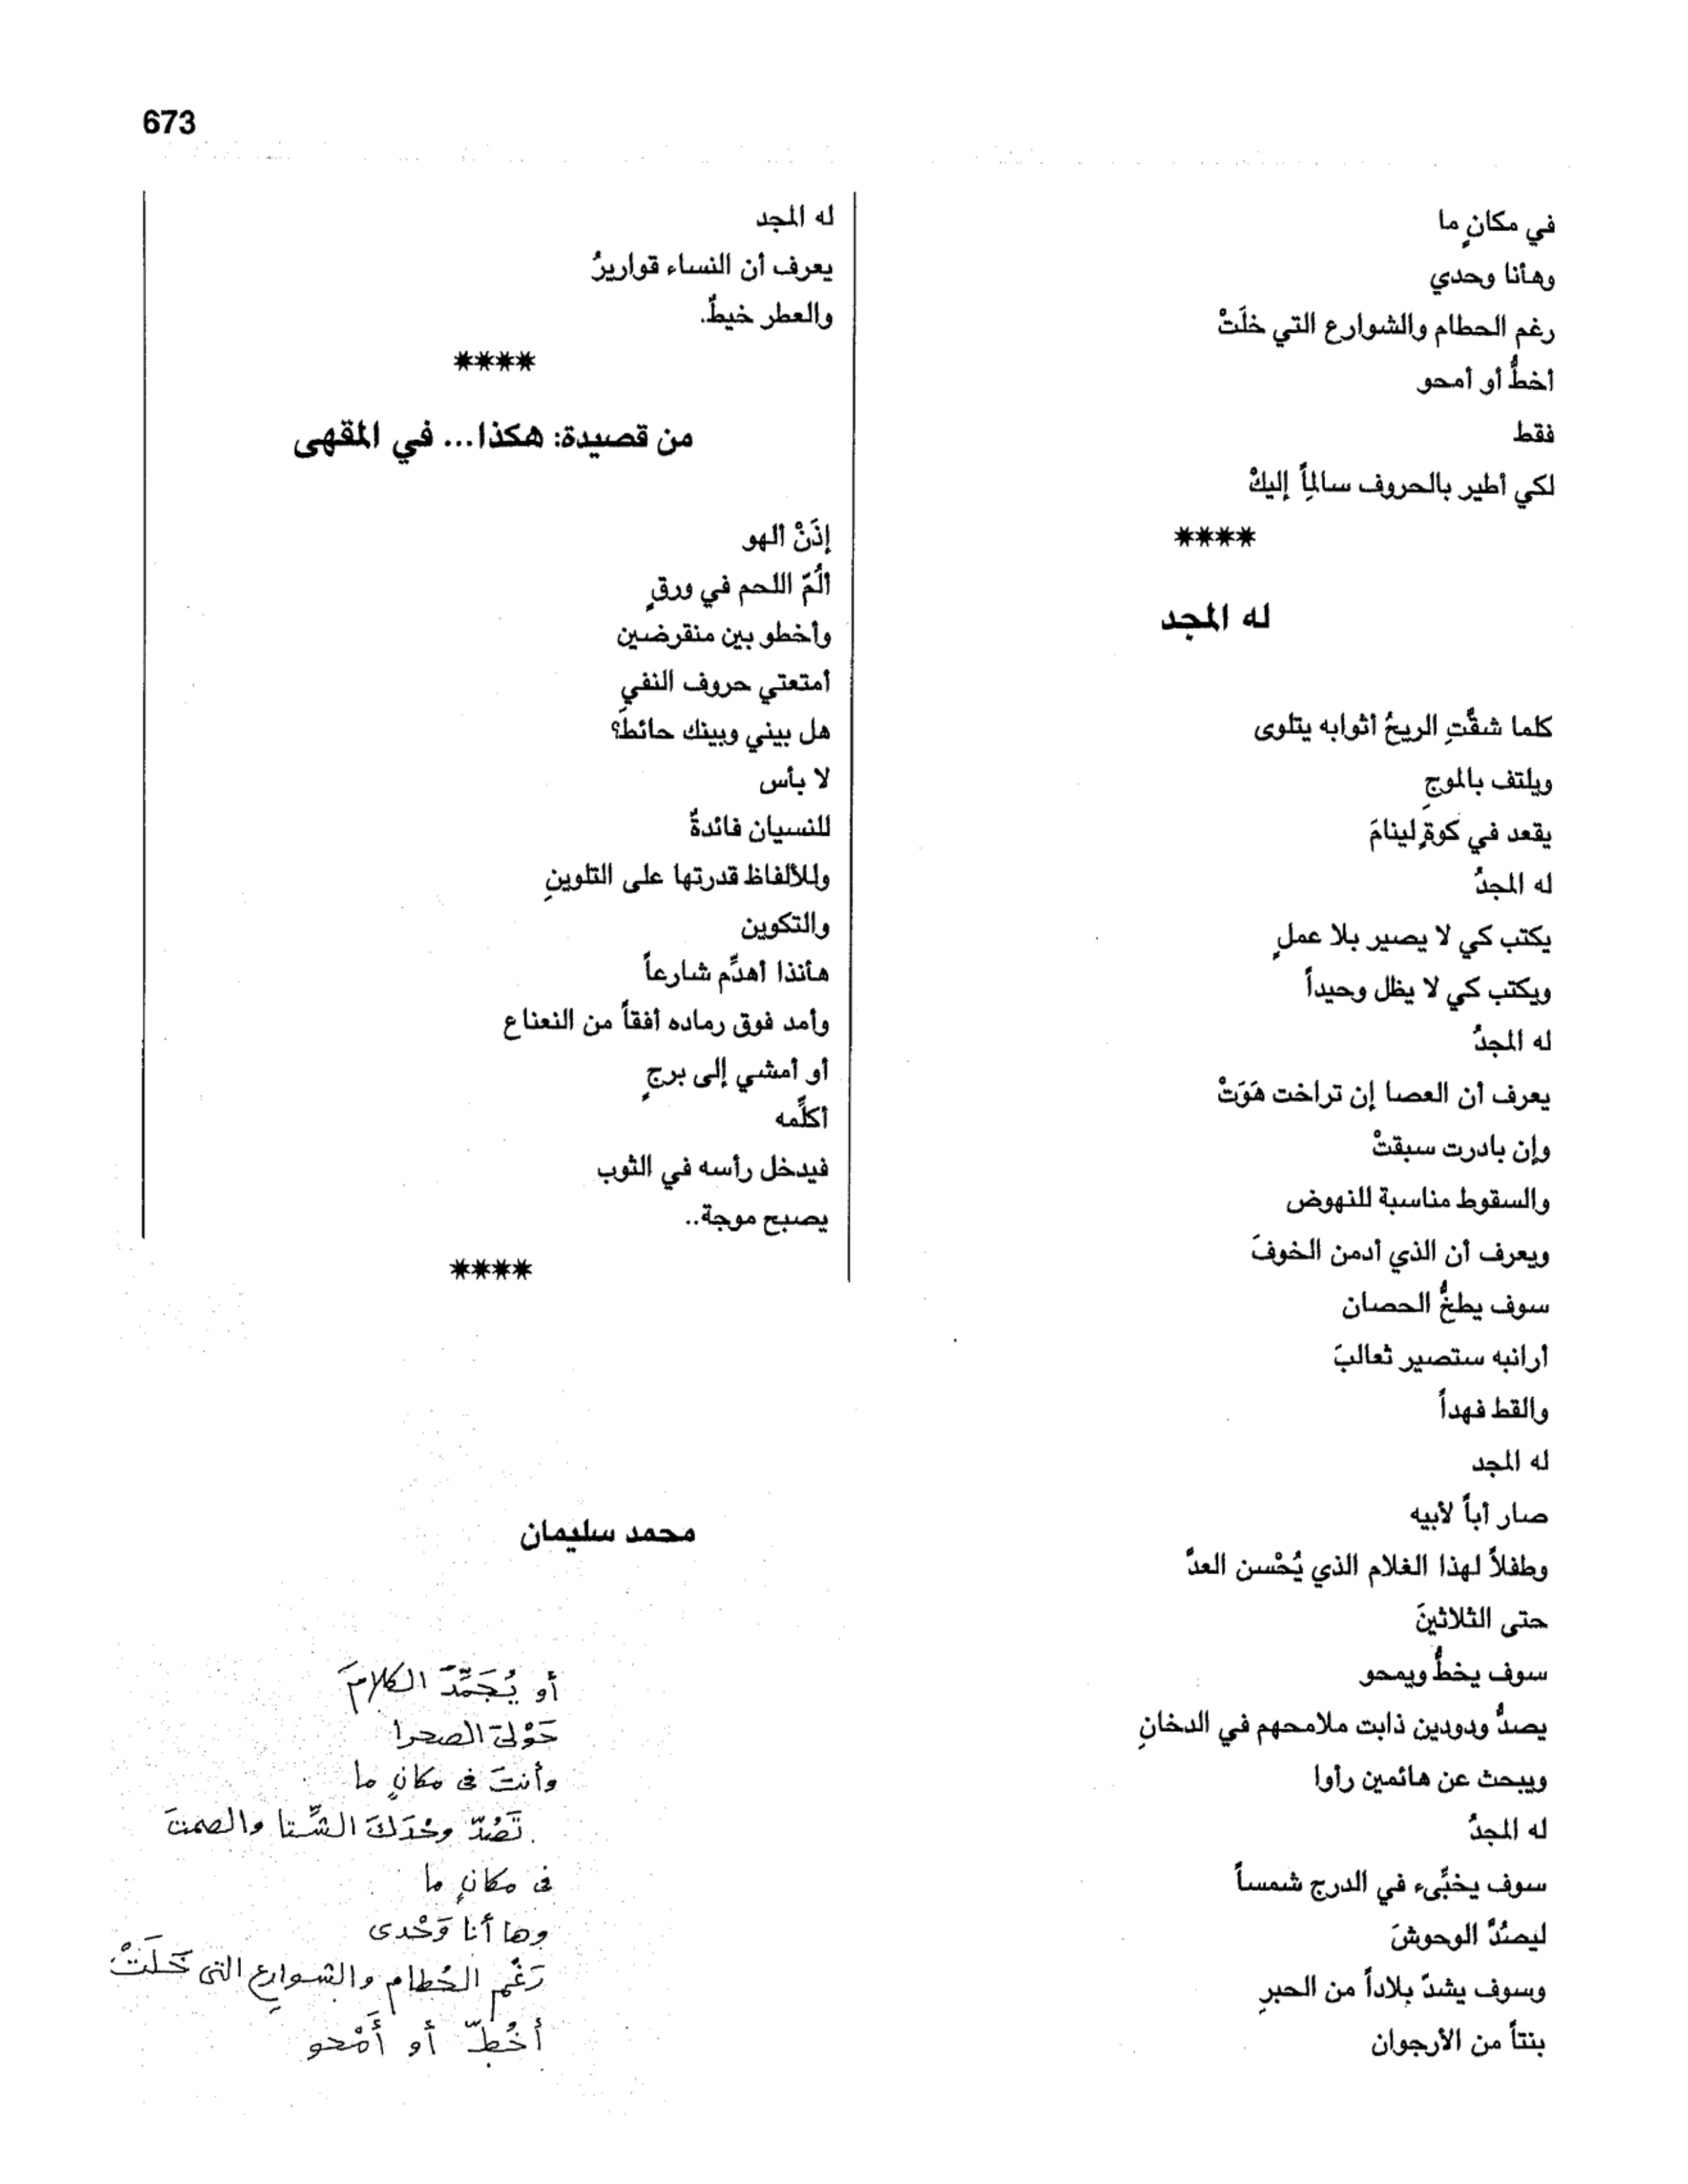 673
في مكانٍ ما
وهأنا وحدي
رغم الحطام والشوارع التي خلَتْ
أخطُّ أو أمحو
فقط
لكي أطير بالحروف سالماً إليكْ
****
له المجد
كلما شقَّتِ الريحُ أثوابه يتلوى
ويلتف بالموجِ
يقعد في كوةٍ لينامَ
له المجدُ
يكتب كي لا يصير بلا عملٍ
ويكتب كي لا يظل وحيداً
له المجدُ
يعرف أن العصا إن تراخت هَوَتْ
وإن بادرت سبقتْ
والسقوط مناسبة للنهوض
ويعرف أن الذي أدمن الخوفَ
سوف يطخُّ الحصان
أرانبه ستصير ثعالبَ
والقط فهداً
له المجد
صار أباً لأبيه
وطفلاً لهذا الغلام الذي يُحْسن العدَّ
حتى الثلاثينَ
سوف يخطُّ ويمحو
يصدُّ ودودين ذابت ملامحهم في الدخانِ
ويبحث عن هائمين رأوا
له المجدُ
سوف يخبِّىء في الدرج شمساً
ليصُدَّ الوحوشَ
وسوف يشدّ بلاداً من الحبرِ
بنتاً من الأرجوان
له المجد
يعرف أن النساء قواريرُ
والعطر خيطٌ.
****
من قصيدة: هكذا... في المقهى
إذَنْ ألهو
ألُمّ اللحم في ورقٍ
وأخطو بين منقرضين
أمتعتي حروف النفيِ
هل بيني وبينك حائطٌ؟
لا بأس
للنسيان فائدةٌ
وللألفاظ قدرتها على التلوينِ
والتكوين
هأنذا أهدِّم شارعاً
وأمد فوق رماده أفقاً من النعناع
أو أمشي إلى برجٍ
أكلِّمه
فيدخل رأسه في الثوب
يصبح موجة..
****
محمد سليمان
أو يُجَمِّدَ الكلامَ
حَوْلىَ الصحرا
وأنتَ فى مكانٍ ما
تَصُدّ وحْدَكَ الشِّتا والصمتَ
فى مكانٍ ما
وها أنا وَحْدى
رَغْمِ الحُطامِ والشوارِعِ التى خَلَتْ
أخُطّ أو أَمْحو